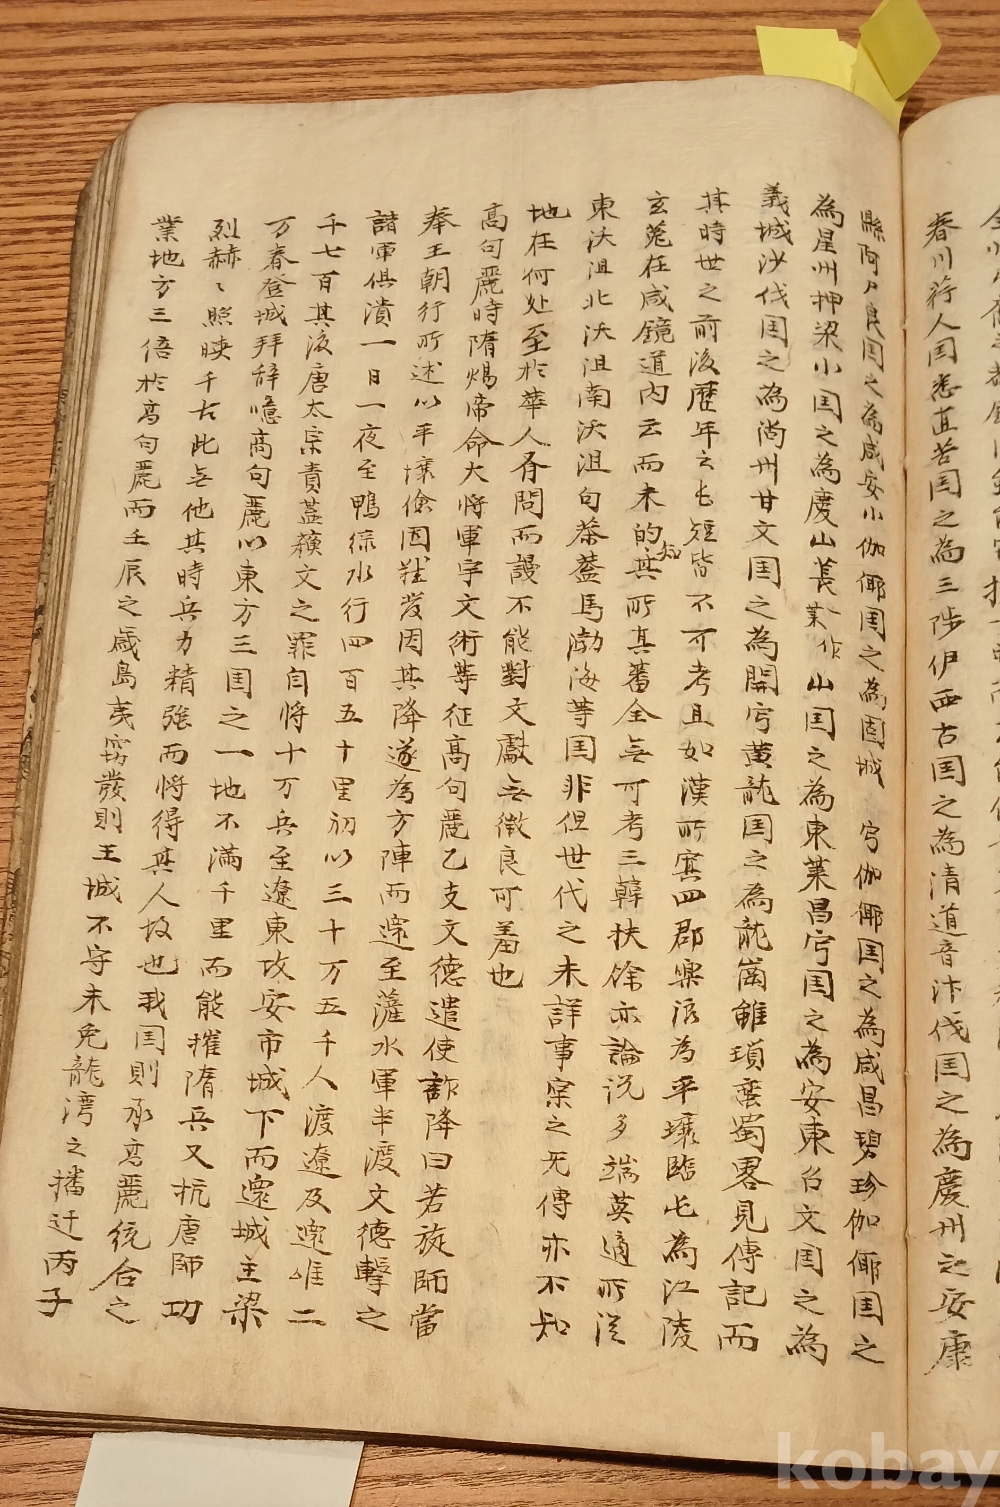 春川荇人国悉直苦国之為三陟伊西古国之為清道音汁伐国之為慶州之安康
縣阿尸良国之為咸安小伽倻国之為固城 寧伽倻国之為咸昌碧珍伽倻国之
為星州押梁小国之為慶山萇 萊作 山国之為東萊昌寧国之為安東召文国之為
義城沙伐国之為尚州甘文国之為開寧黄龍国之為龍崗雖瑣蛮蜀畧見傳記而
其時世之前後歷年之長短皆不可考且如漢所寘四郡樂浪為平壤臨屯為江陵
玄菟在咸鏡道內云而未的知其所真蕃全無可考三韓扶餘亦論説多端莫適所從
東沃沮北沃沮南沃沮句荼蓋馬渤海等国非但世代之未詳事案之旡傳亦不知
地在何处至於華人有問而謾不能對文獻無徵良可羞也
高句麗時隋煬帝命大将軍宇文術等征高句麗乙支文德遣使詐降曰若旋師當
奉王朝行所述以平壤險固難拔因其降遂為方陣而還至薩水軍半渡文德擊之
諸軍俱潰一日一夜至鴨綠水行四百五十里初以三十万五千人渡遼及還唯二
千七百其後唐太宗責蓋蘇文之罪自将十万兵至遼東攻安市城下而還城主梁
万春登城拜辞噫高句麗以東方三国之一地不滿千里而能摧隋兵又抗唐師功
烈赫〻照映千古此無他其時兵力精强而将得其人故也我国則承高麗統合之
業地方三倍於高句麗而壬辰之歲島夷竊發則王城不守未免龍湾之播迁丙子
kobay